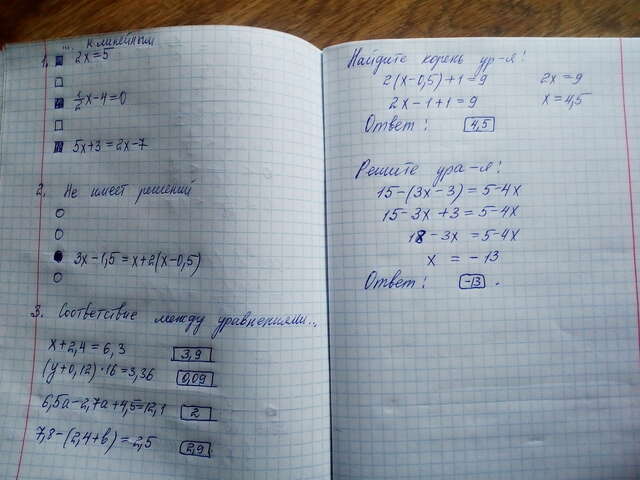 ... к линейным
1. 2x=5
1/2x-4=0
5x+3=2x-7
2. Не имеет решений
3x-1,5=x+2(x-0,5)
3. Соответствие между уравнениями...
x+2,4=6,3 3,9
(y+0,12)·16=3,36 0,09
6,5a-2,7a+4,5=12,1 2
7,8-(2,4+b)=2,5 2,9
Найдите корень ур-я!
2(x-0,5)+1=9 2x=9
2x-1+1=9 x=4,5
Ответ: 4,5
Решите ура-я!
15-(3x-3)=5-4x
15-3x+3=5-4x
18-3x=5-4x
x = -13
Ответ: -13.